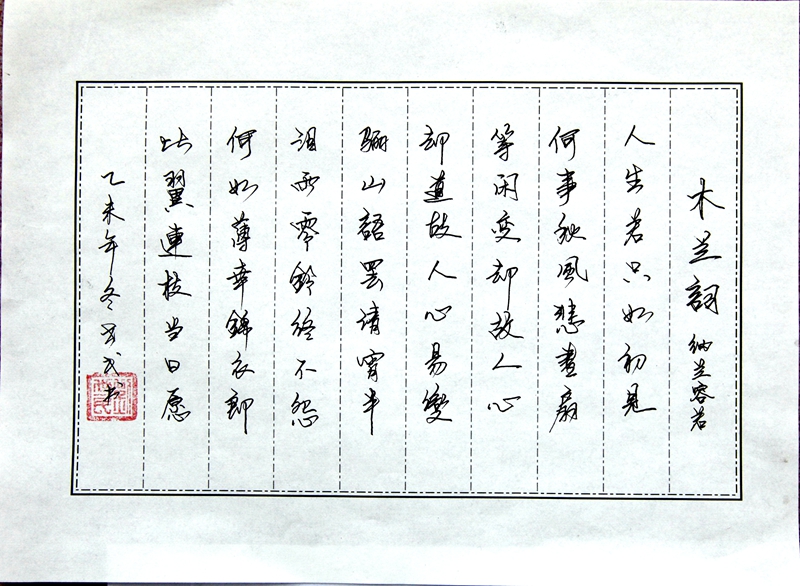 木兰詞 纳兰容若
人生若只如初見
何事秋風悲畫扇
等闲变却故人心
却道故人心易變
骊山語罢清宵半
泪雨零鈴终不怨
何如薄幸錦衣郎
比翼連枝当日愿
乙未年冬